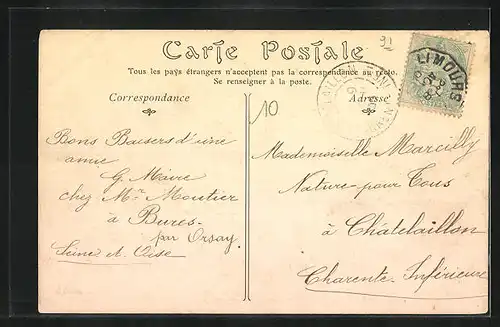 91
Carte Postale
Tous les pays étrangers n'acceptent pas la correspondance au recto.
Se renseigner à la poste.
Correspondance
Adresse
LIMOURS
10
Bons Baisers d'une
amie
G. Maire
chez Mr Moutier
à Bures-
par Orsay
Seine et Oise
Mademoiselle Marcilly
Nature pour Tous
à Chatelaillon
Charente Inférieure